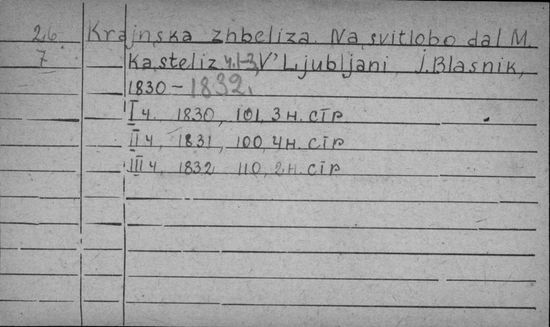 26 Krajnska zhbeliza. Na svitlobo dal M.
7 Kasteliz ч.1-3, V' Ljubljani, J. Blasnik,
1830-1832.
I ч. 1830, 101, 3 н. стр.
II ч. 1831, 100, 4 н. стр
III ч. 1832 110, 2 н. стр